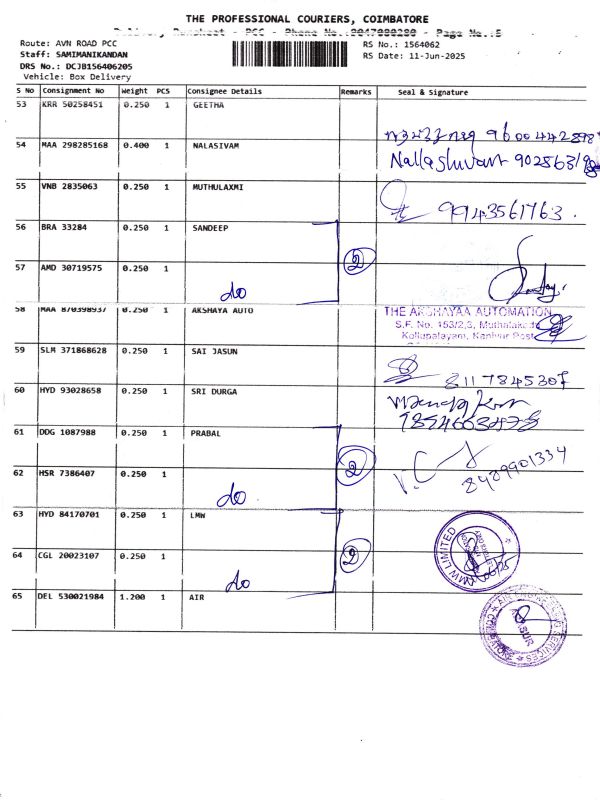 THE PROFESSIONAL COURIERS, COIMBATORE
Delivery Runsheet - PCC - Phone No.:9047080280 - Page No.:5
Route: AVN ROAD PCC
RS No.: 1564062
Staff: SAMIMANIKANDAN
RS Date: 11-Jun-2025
DRS No.: DCJB156406205
Vehicle: Box Delivery
S No Consignment No Weight PCS Consignee Details Remarks Seal & Signature
53 KRR 50258451 0.250 1 GEETHA
9600442898
54 MAA 298285168 0.400 1 NALASIVAM
55 VNB 2835063 0.250 1 MUTHULAXMI 9943561763.
56 BRA 33284 0.250 1 SANDEEP
2
57 AMD 30719575 0.250 1 do
58 MAA 870398937 0.250 1 AKSHAYA AUTO THE AKSHAYAA AUTOMATION
S.F. No. 153/2,3, Muthalakedu
Kollupalayam, Kaniyur Post
59 SLM 371868628 0.250 1 SAI JASUN
60 HYD 93028658 0.250 1 SRI DURGA
61 DDG 1087988 0.250 1 PRABAL
2
8489901334
62 HSR 7386407 0.250 1 do
63 HYD 84170701 0.250 1 LMW
LMW LIMITED
2
64 CGL 20023107 0.250 1 do
65 DEL 530021984 1.200 1 AIR